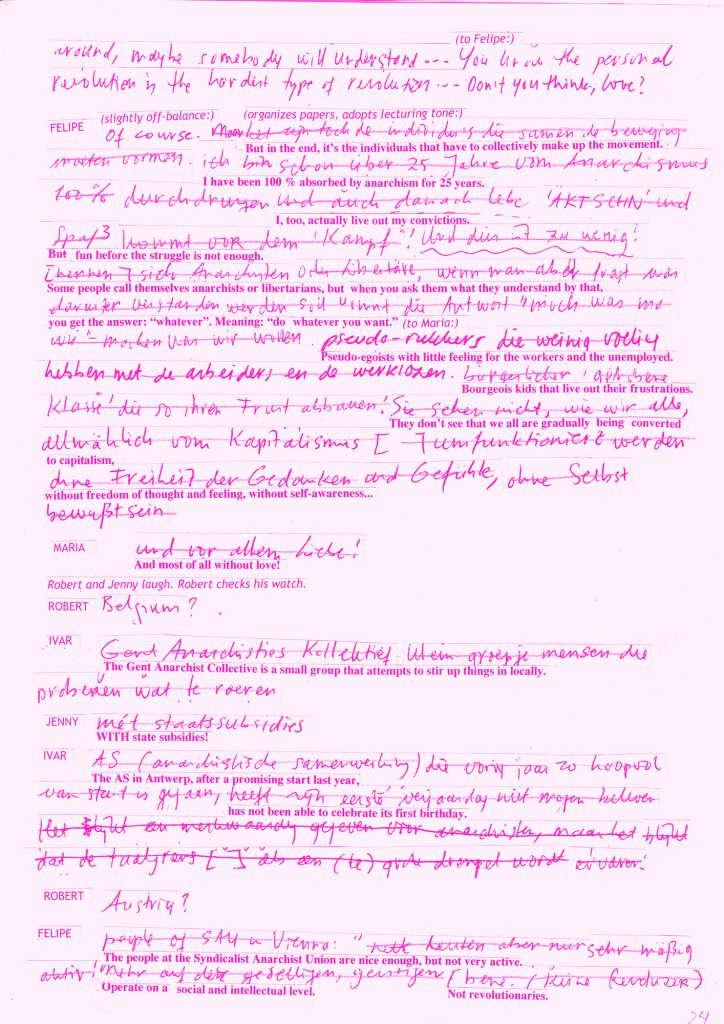 (to Felipe:)
around, maybe somebody will understand --- You know the personal
revolution is the hardest type of revolution --- Don't you think, love?
(slightly off-balance:) (organizes papers, adopts lecturing tone:)
FELIPE Of course. Maar het zijn toch de individu's die samen de beweging
But in the end, it's the individuals that have to collectively make up the movement.
moeten vormen. ich bin schon über 25 Jahre vom Anarchismus
I have been 100 % absorbed by anarchism for 25 years.
100% durchdrungen und auch danach lebe 'AKTSCHN' und
I, too, actually live out my convictions.
Spaß kommt vor dem 'Kampf'! Und dies ist zu wenig!
But fun before the struggle is not enough.
[nennen] sich Anarchisten oder Libertäre, wenn man aber fragt was
Some people call themselves anarchists or libertarians, but when you ask them what they understand by that,
darunter verstanden werden soll kommt die Antwort "mach was
you get the answer: "whatever". Meaning: "do whatever you want." (to Maria:)
wir" - machen was wir wollen. pseudo- die weinig voeling
Pseudo-egoists with little feeling for the workers and the unemployed.
hebben met de arbeiders en de werklozen. bürgerlicher
Bourgeois kids that live out their frustrations.
Klasse die so ihren Frust abbauen! Sie sehen nicht, wie wir alle,
They don't see that we all are gradually being converted
allmählich vom Kapitalismus [ ] umfunktioniert werden
to capitalism,
ohne Freiheit der Gedanken und Gefühle, ohne Selbst
without freedom of thought and feeling, without self-awareness...
bewußtsein
MARIA und vor allem Liebe!
And most of all without love!
Robert and Jenny laugh. Robert checks his watch.
ROBERT Belgium?
IVAR Gent Anarchisties Kollektief klein groepje mensen die
The Gent Anarchist Collective is a small group that attempts to stir up things in locally.
proberen wat te roeren
JENNY mét staatssubsidies
WITH state subsidies!
IVAR AS (anarchistische samenwerking) die vorig jaar zo hoopvol
The AS in Antwerp, after a promising start last year,
van start is gegaan, heeft zijn eerste verjaardag niet mogen beleven
has not been able to celebrate its first birthday.
Het blijkt een merkwaardig gegeven voor anarchisten, maar het blijkt
dat de taalgrens ["] als een (te) grote drempel wordt ervaren!
ROBERT Austria?
FELIPE people of SAU in Vienna: "nette Leuten aber nur sehr mäßig
The people at the Syndicalist Anarchist Union are nice enough, but not very active.
aktiv! Mehr auf geselligen, geistigen [bene. / keine Revoluzer)
Operate on a social and intellectual level. Not revolutionaries.
24